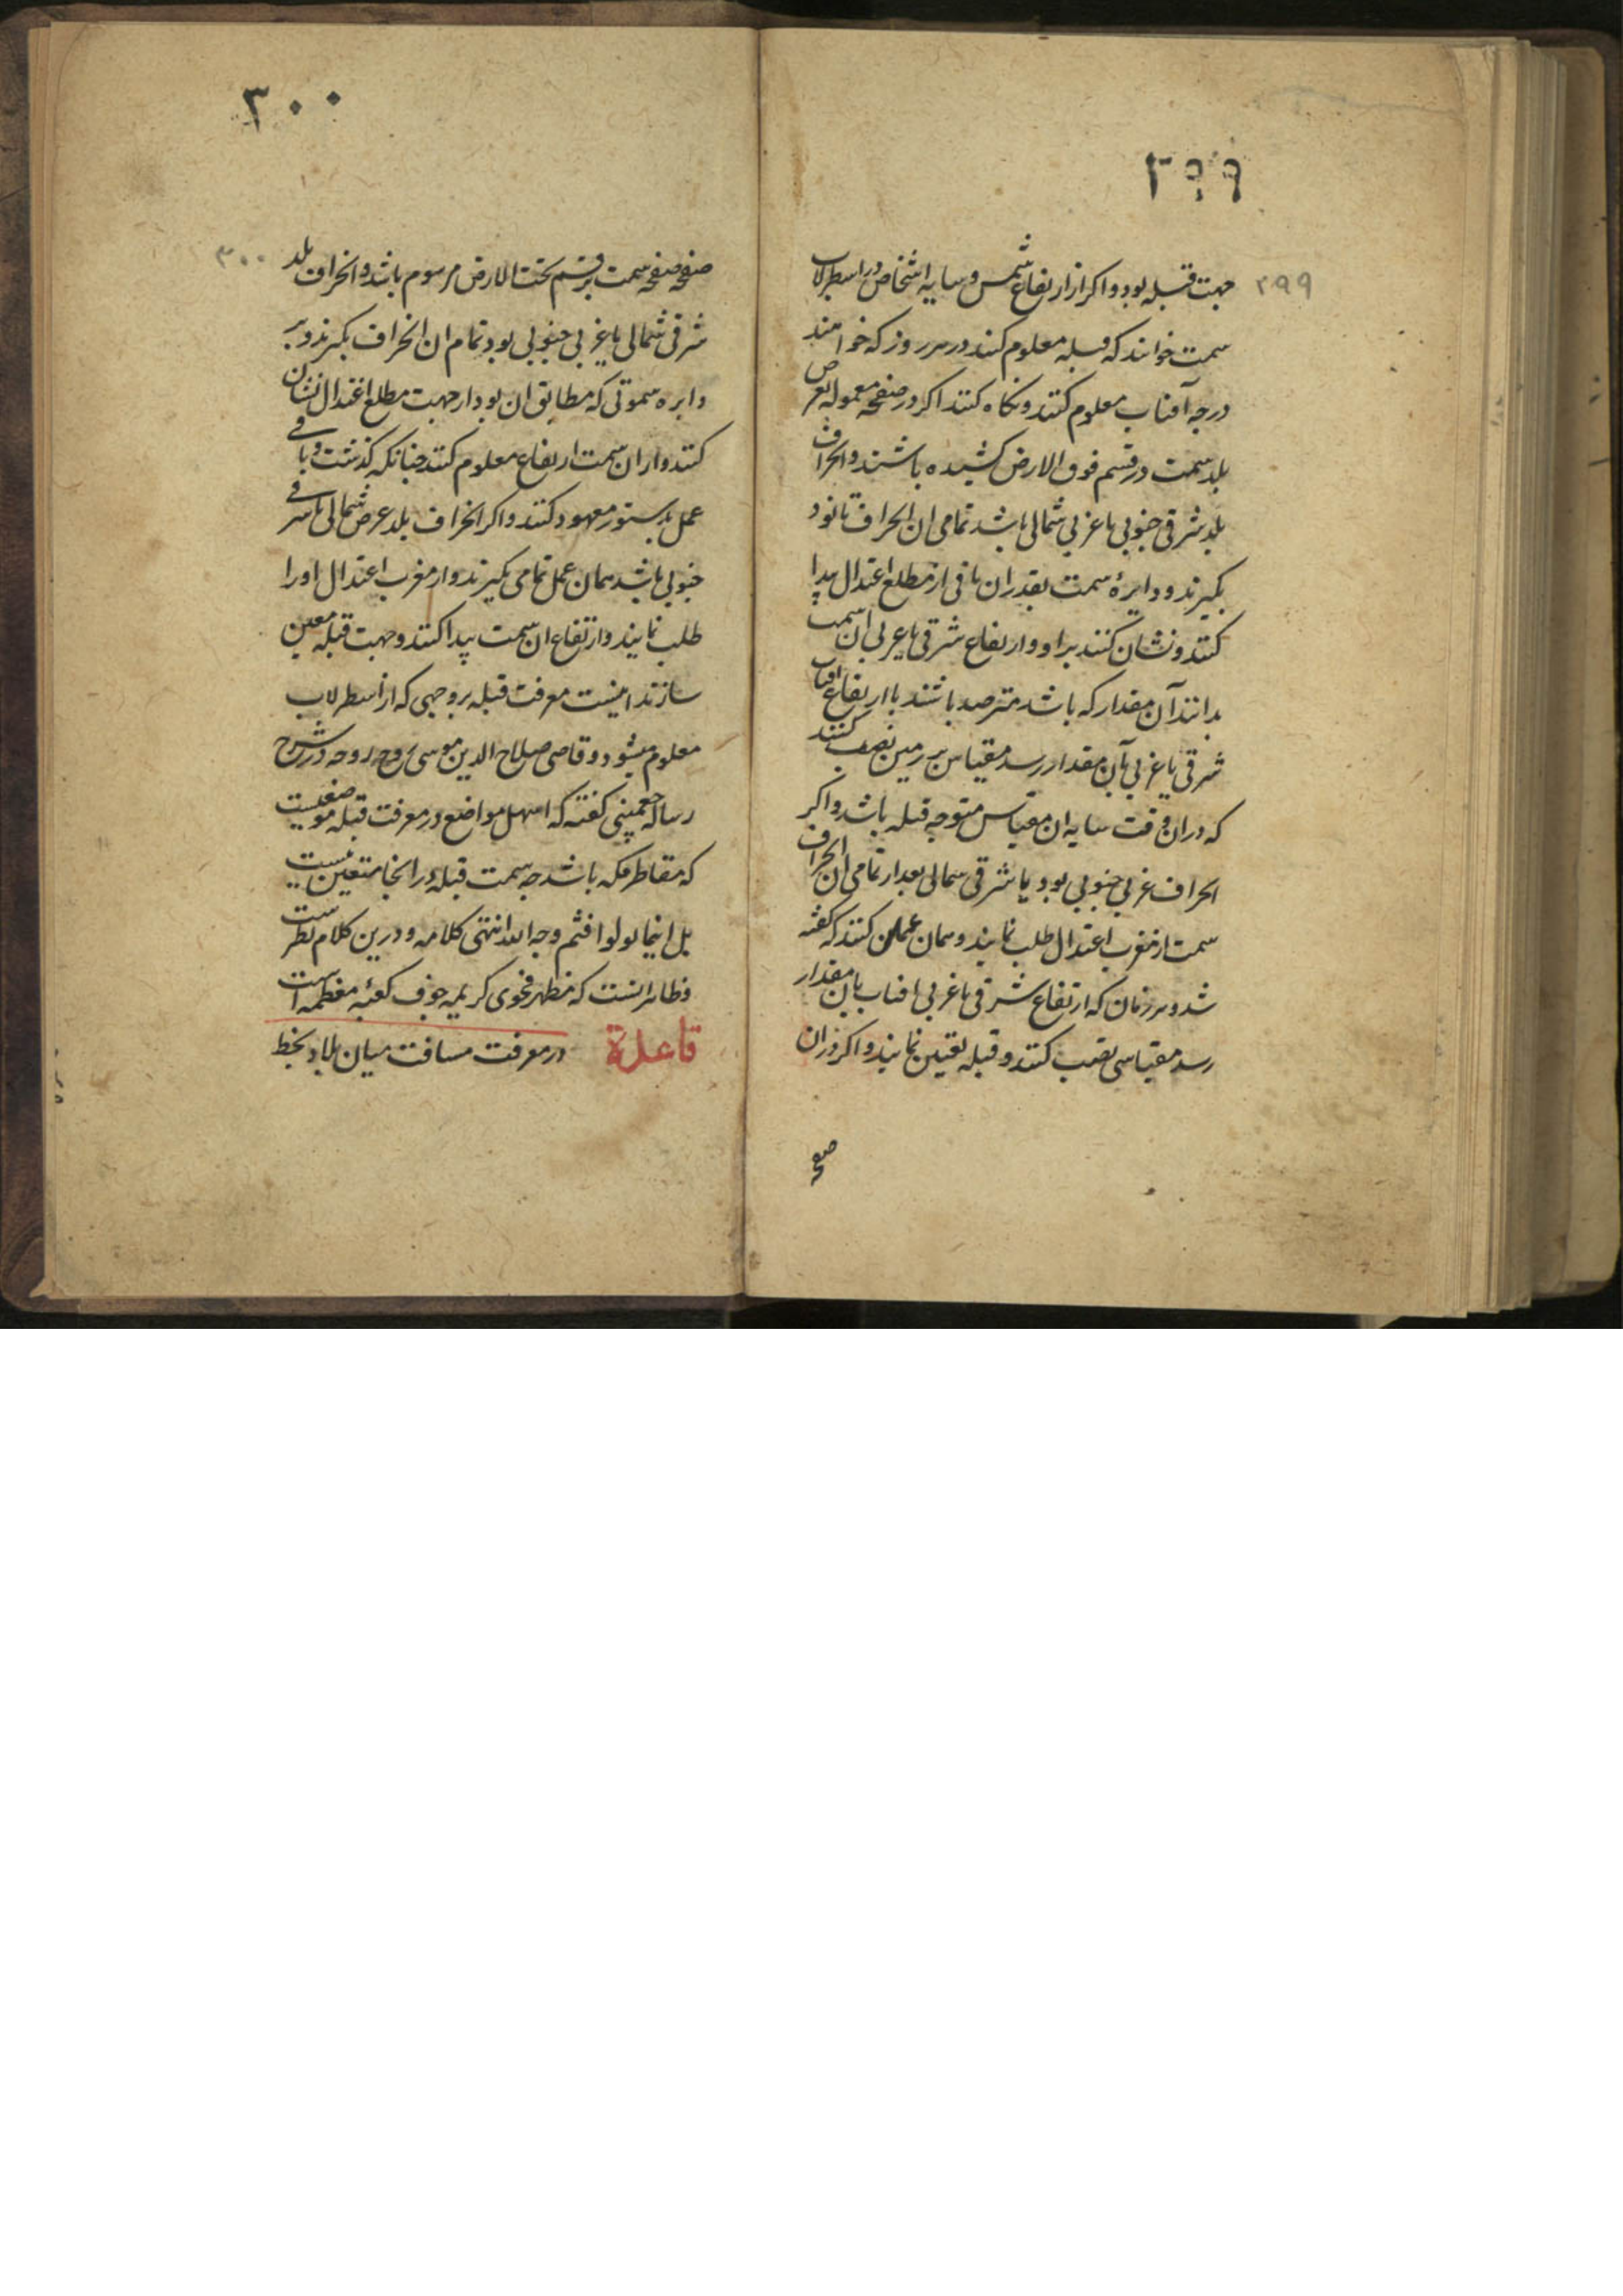 ۲۹۹
۲۹۹
جهت قبله بود و اکر از ارتفاع شمس و سایه اشخاص در اسطرلاب
سمت خوانند که قبله معلوم کنند در هر روز که خواهند
درجه آفتاب معلوم کنند و نکاه کنند اکر در صفحه معموله بعرض
بلد سمت در قسم فوق الارض کشیده باشند و انحراف
بلد شرقی جنوبی یا غربی شمالی باشد تمامی ان انحراف تا نود
بکیرند و دایرهٔ سمت بقدر ان باقی از مطلع اعتدال پیدا
کنند و نشان کنند براو و ارتفاع شرقی یا غربی ان سمت
بدانند آن مقدار که باشد مترصد باشند تا ارتفاع افتاب
شرقی یا غربی بآن مقدار رسد مقیاس بر زمین نصب کنند
که دران وقت سایه ان مقیاس متوجه قبله باشد و اکر
انحراف غربی جنوبی بود یا شرقی شمالی بعد از تمامی ان انحراف
سمت از مغرب اعتدال طلب نمایند و همان عمل کنند که کفته
شد و هر زمان که ارتفاع شرقی یا غربی افتاب بان مقدار
رسد مقیاسی نصب کنند و قبله تعیین نمایند و اکر دران
صفحه
۳۰۰
۳۰۰
صفحه صفحه سمت بر قسم تحت الارض مرسوم باشد و انحراف بلد
شرقی شمالی یا غربی جنوبی بود تمام ان انحراف بکیرند و بر
دایره سموتی که مطابق ان بود از جهت مطلع اعتدال نشان
کنند و از ان سمت ارتفاع معلوم کنند چنانکه کذشت و باقی
عمل بدستور معهود کنند و اکر انحراف بلد عرض شمالی یا شرقی
جنوبی باشد همان عمل تمامی بکیرند و از مغرب اعتدال اورا
طلب نمایند و ارتفاع ان سمت پیدا کنند و جهت قبله معین
سازند اینست معرفت قبله بروجهی که از اسطرلاب
معلوم میشود و قاضی صلاح الدین موسی روح روحه در شرح
رساله چغمینی کفته که اسهل مواضع در معرفت قبله موضعیست
که مقاطر مکه باشد چه سمت قبله در انجا متعین نیست
بل اینما تولوا فثم وجه الله انتهی کلامه و درین کلام نظرست
و ظاهر انست که مظهر فحوی کریمه جوف کعبهٔ معظمه است
قاعدة در معرفت مسافت میان بلاد بخط